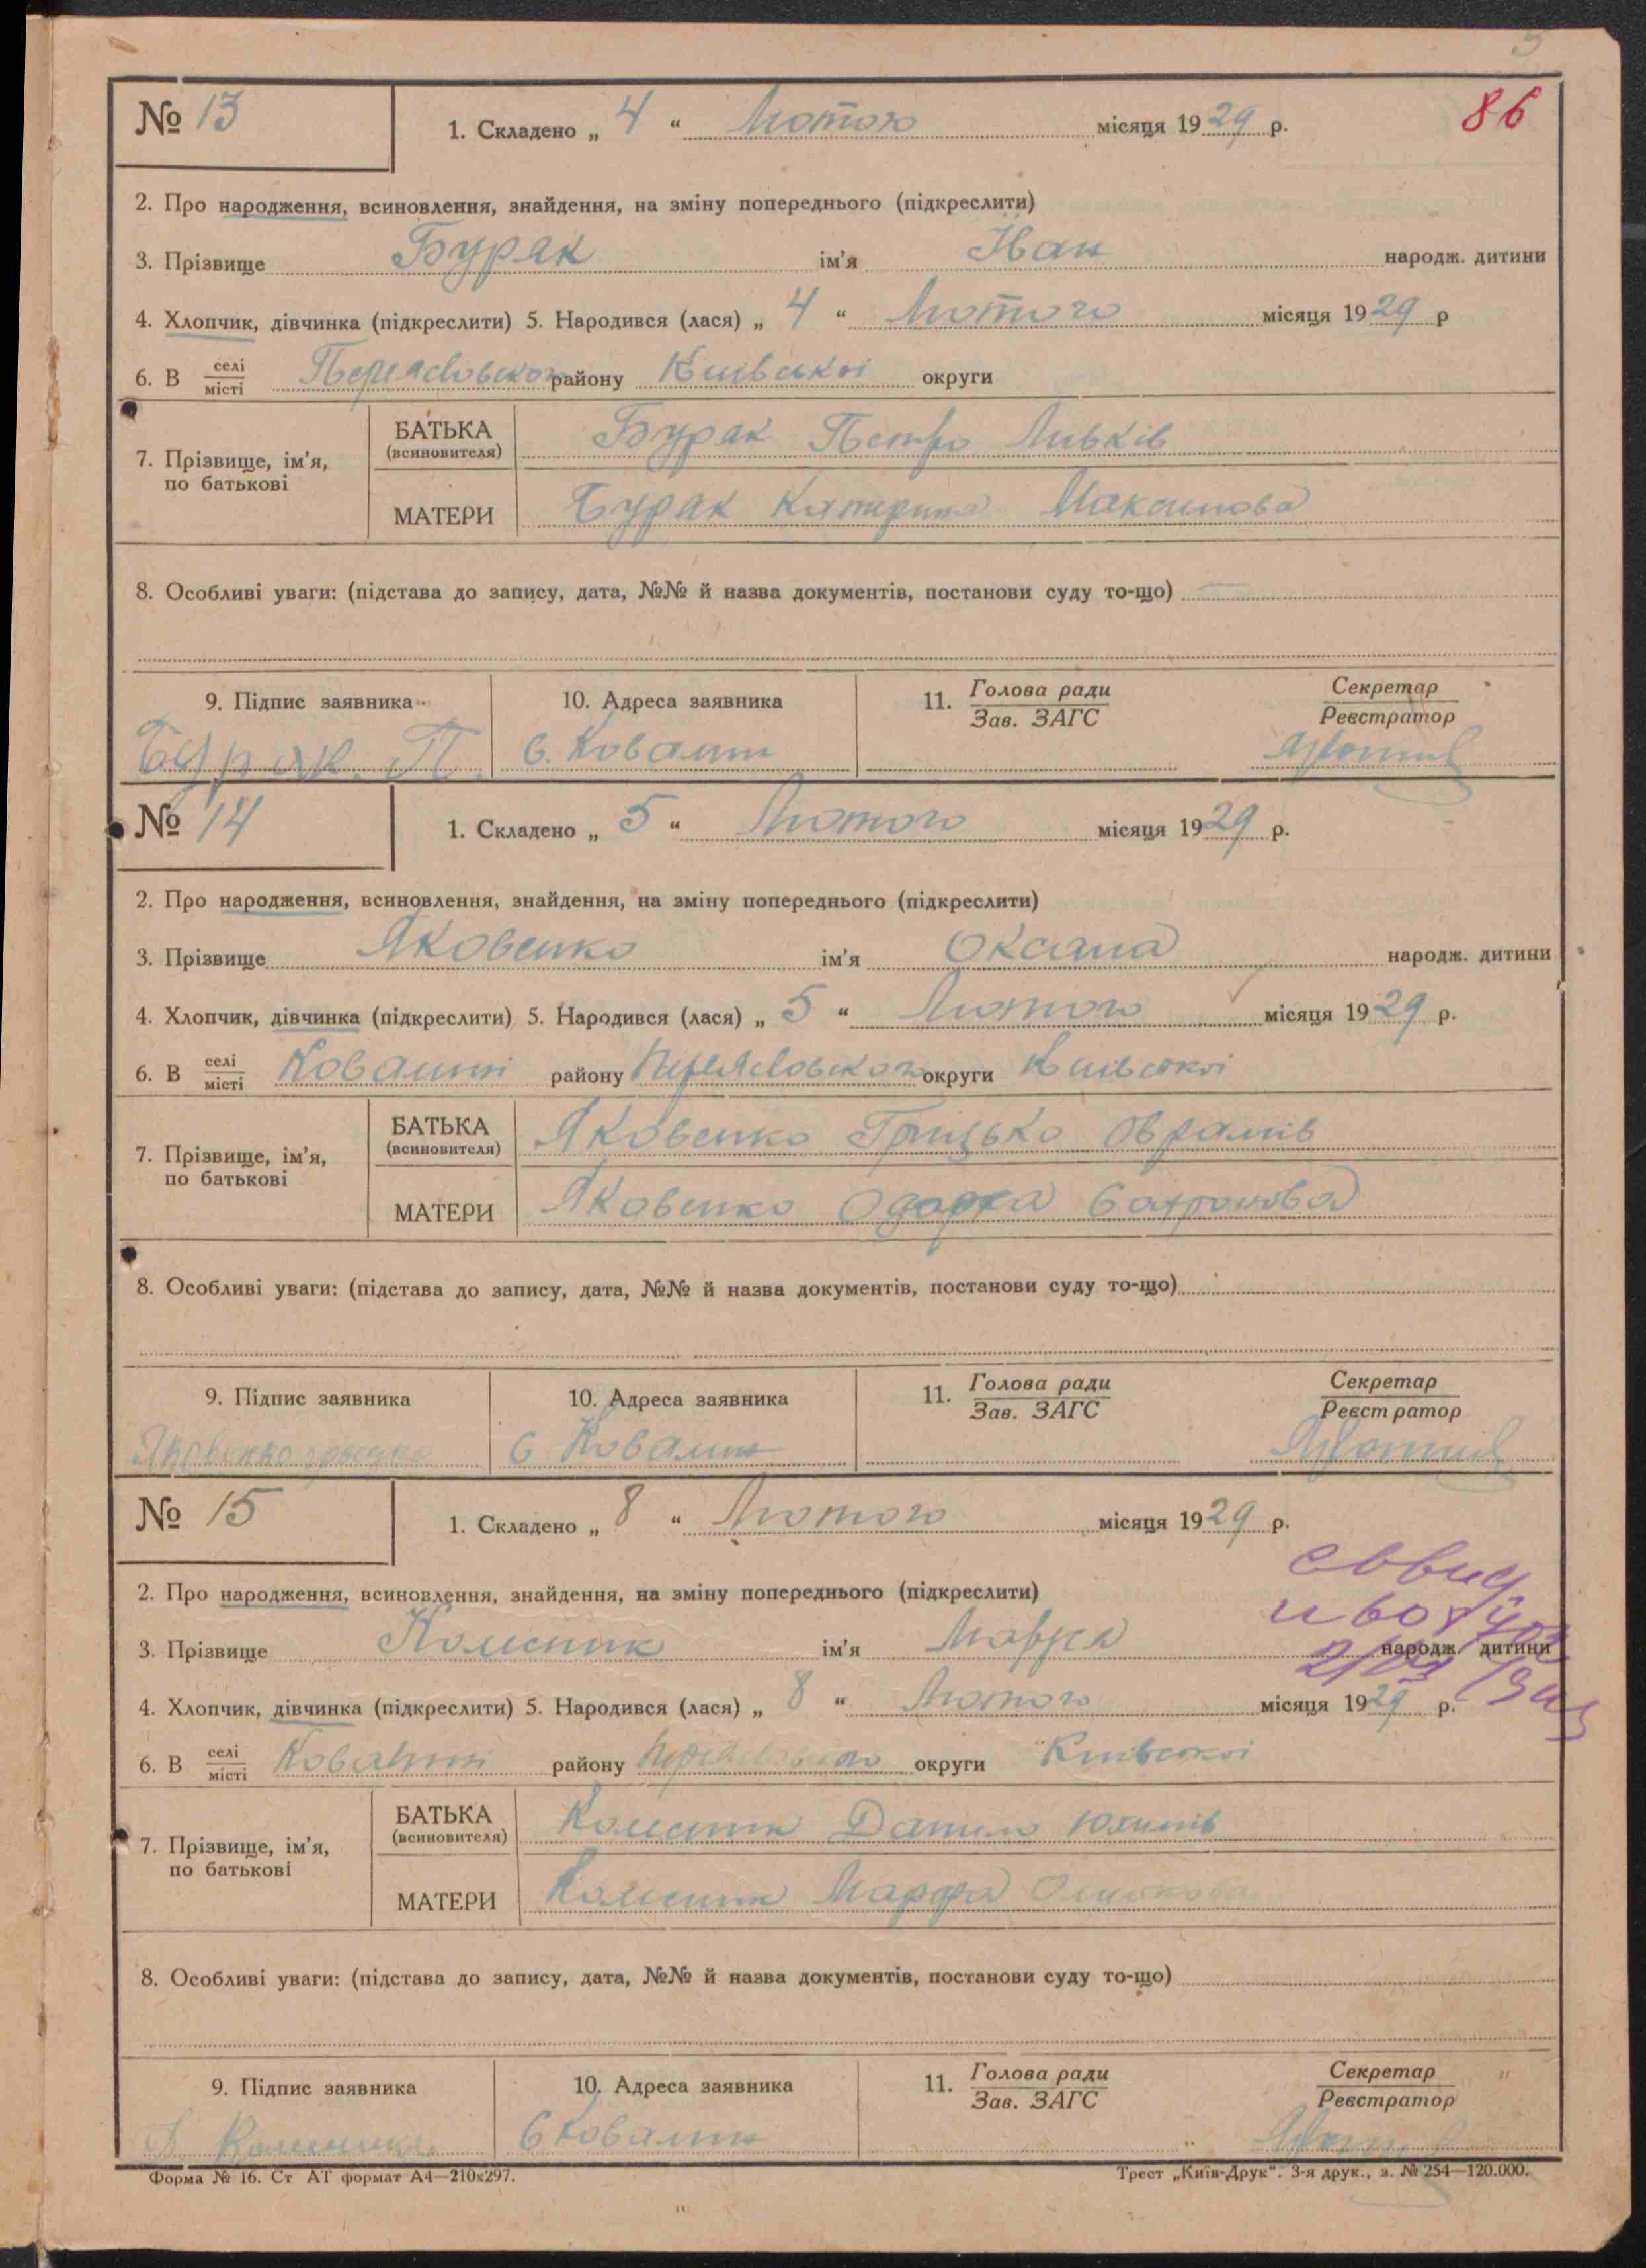 № 13
1. Складено „ 4 “ Лютого місяця 1929 р.
86
2. Про народження, всиновлення, знайдення, на зміну попереднього (підкреслити)
3. Прізвище Буряк ім’я Іван народж. дитини
4. Хлопчик, дівчинка (підкреслити) 5. Народився (лася) „ 4 “ Лютого місяця 1929 р
6. В селі місті Переясловського району Київської округи
7. Прізвище, ім’я, по батькові
БАТЬКА (всиновителя) Буряк Петро Ливків
МАТЕРИ Буряк Катерина Максимова
8. Особливі уваги: (підстава до запису, дата, №№ й назва документів, постанови суду то-що)
9. Підпис заявника 10. Адреса заявника 11. Голова ради Зав. ЗАГС Секретар Реєстратор
Буряк. П. с. Ковалин
№ 14
1. Складено „ 5 “ Лютого місяця 1929 р.
2. Про народження, всиновлення, знайдення, на зміну попереднього (підкреслити)
3. Прізвище Яковенко ім’я Оксана народж. дитини
4. Хлопчик, дівчинка (підкреслити) 5. Народився (лася) „ 5 “ Лютого місяця 1929 р.
6. В селі місті Ковалині району Переясловського округи Київської
7. Прізвище, ім’я, по батькові
БАТЬКА (всиновителя) Яковенко Грицько Оврамів
МАТЕРИ Яковенко Одарка Сафронова
8. Особливі уваги: (підстава до запису, дата, №№ й назва документів, постанови суду то-що)
9. Підпис заявника 10. Адреса заявника 11. Голова ради Зав. ЗАГС Секретар Реєстратор
Яковенко с Ковалин
№ 15
1. Складено „ 8 “ Лютого місяця 1929 р.
2. Про народження, всиновлення, знайдення, на зміну попереднього (підкреслити)
3. Прізвище Колісник ім’я Мавра народж. дитини
4. Хлопчик, дівчинка (підкреслити) 5. Народився (лася) „ 8 “ Лютого місяця 1929 р.
6. В селі місті Ковалині району Переясловського округи Київської
7. Прізвище, ім’я, по батькові
БАТЬКА (всиновителя) Колісник Данило Юхимів
МАТЕРИ Колісник Марфа
8. Особливі уваги: (підстава до запису, дата, №№ й назва документів, постанови суду то-що)
9. Підпис заявника 10. Адреса заявника 11. Голова ради Зав. ЗАГС Секретар Реєстратор
с Ковалин
Форма № 16. Ст АТ формат А4—210х297. Трест „Київ-Друк“. 3-я друк., з. № 254—120.000.